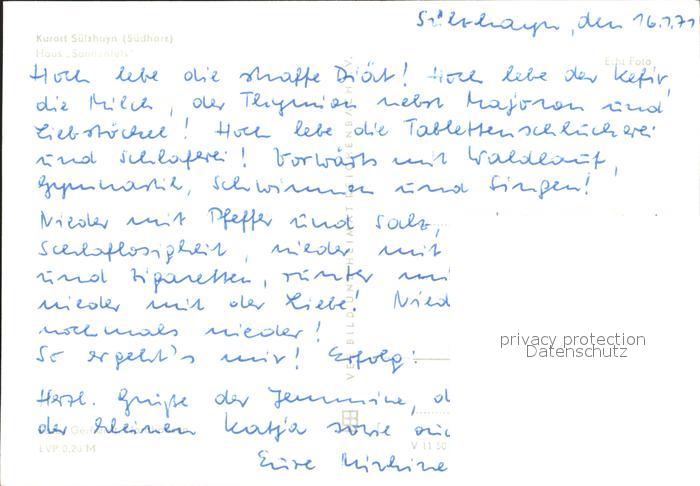 Sülzhayn, den 16.7.71
Kurort Sülzhayn (Südharz)
Haus „Sonnenfels“
Echt Foto
Hoch lebe die straffe Diät! Hoch lebe der Kefir,
die Milch, der Thymian nebst Majoran und
Liebstöckel! Hoch lebe die Tablettenschluckerei
und Schlaferei! Vorwärts mit Waldlauf,
Gymnastik, Schwimmen und Singen!
Nieder mit Pfeffer und Salz,
Schlaflosigkeit, nieder mit
und Zigaretten, runter
nieder mit der Liebe! Nied
nochmals nieder!
So ergeht's mir! Erfolg:
privacy protection
Datenschutz
Herzl. Grüße der d
der kleinen Katja sowie
EVP 0,20 M
V 11 50
Eure